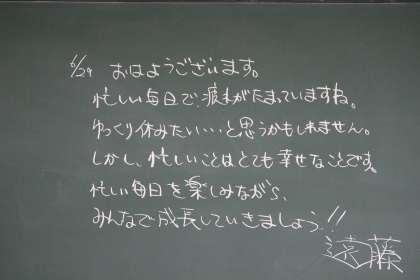 6/29 おはようございます。
忙しい毎日で、疲れがたまっていますね。
ゆっくり休みたい・・・と思うかもしれません。
しかし、忙しいことはとても幸せなことです。
忙しい毎日を楽しみながら、
みんなで成長していきましょう!!
遠藤